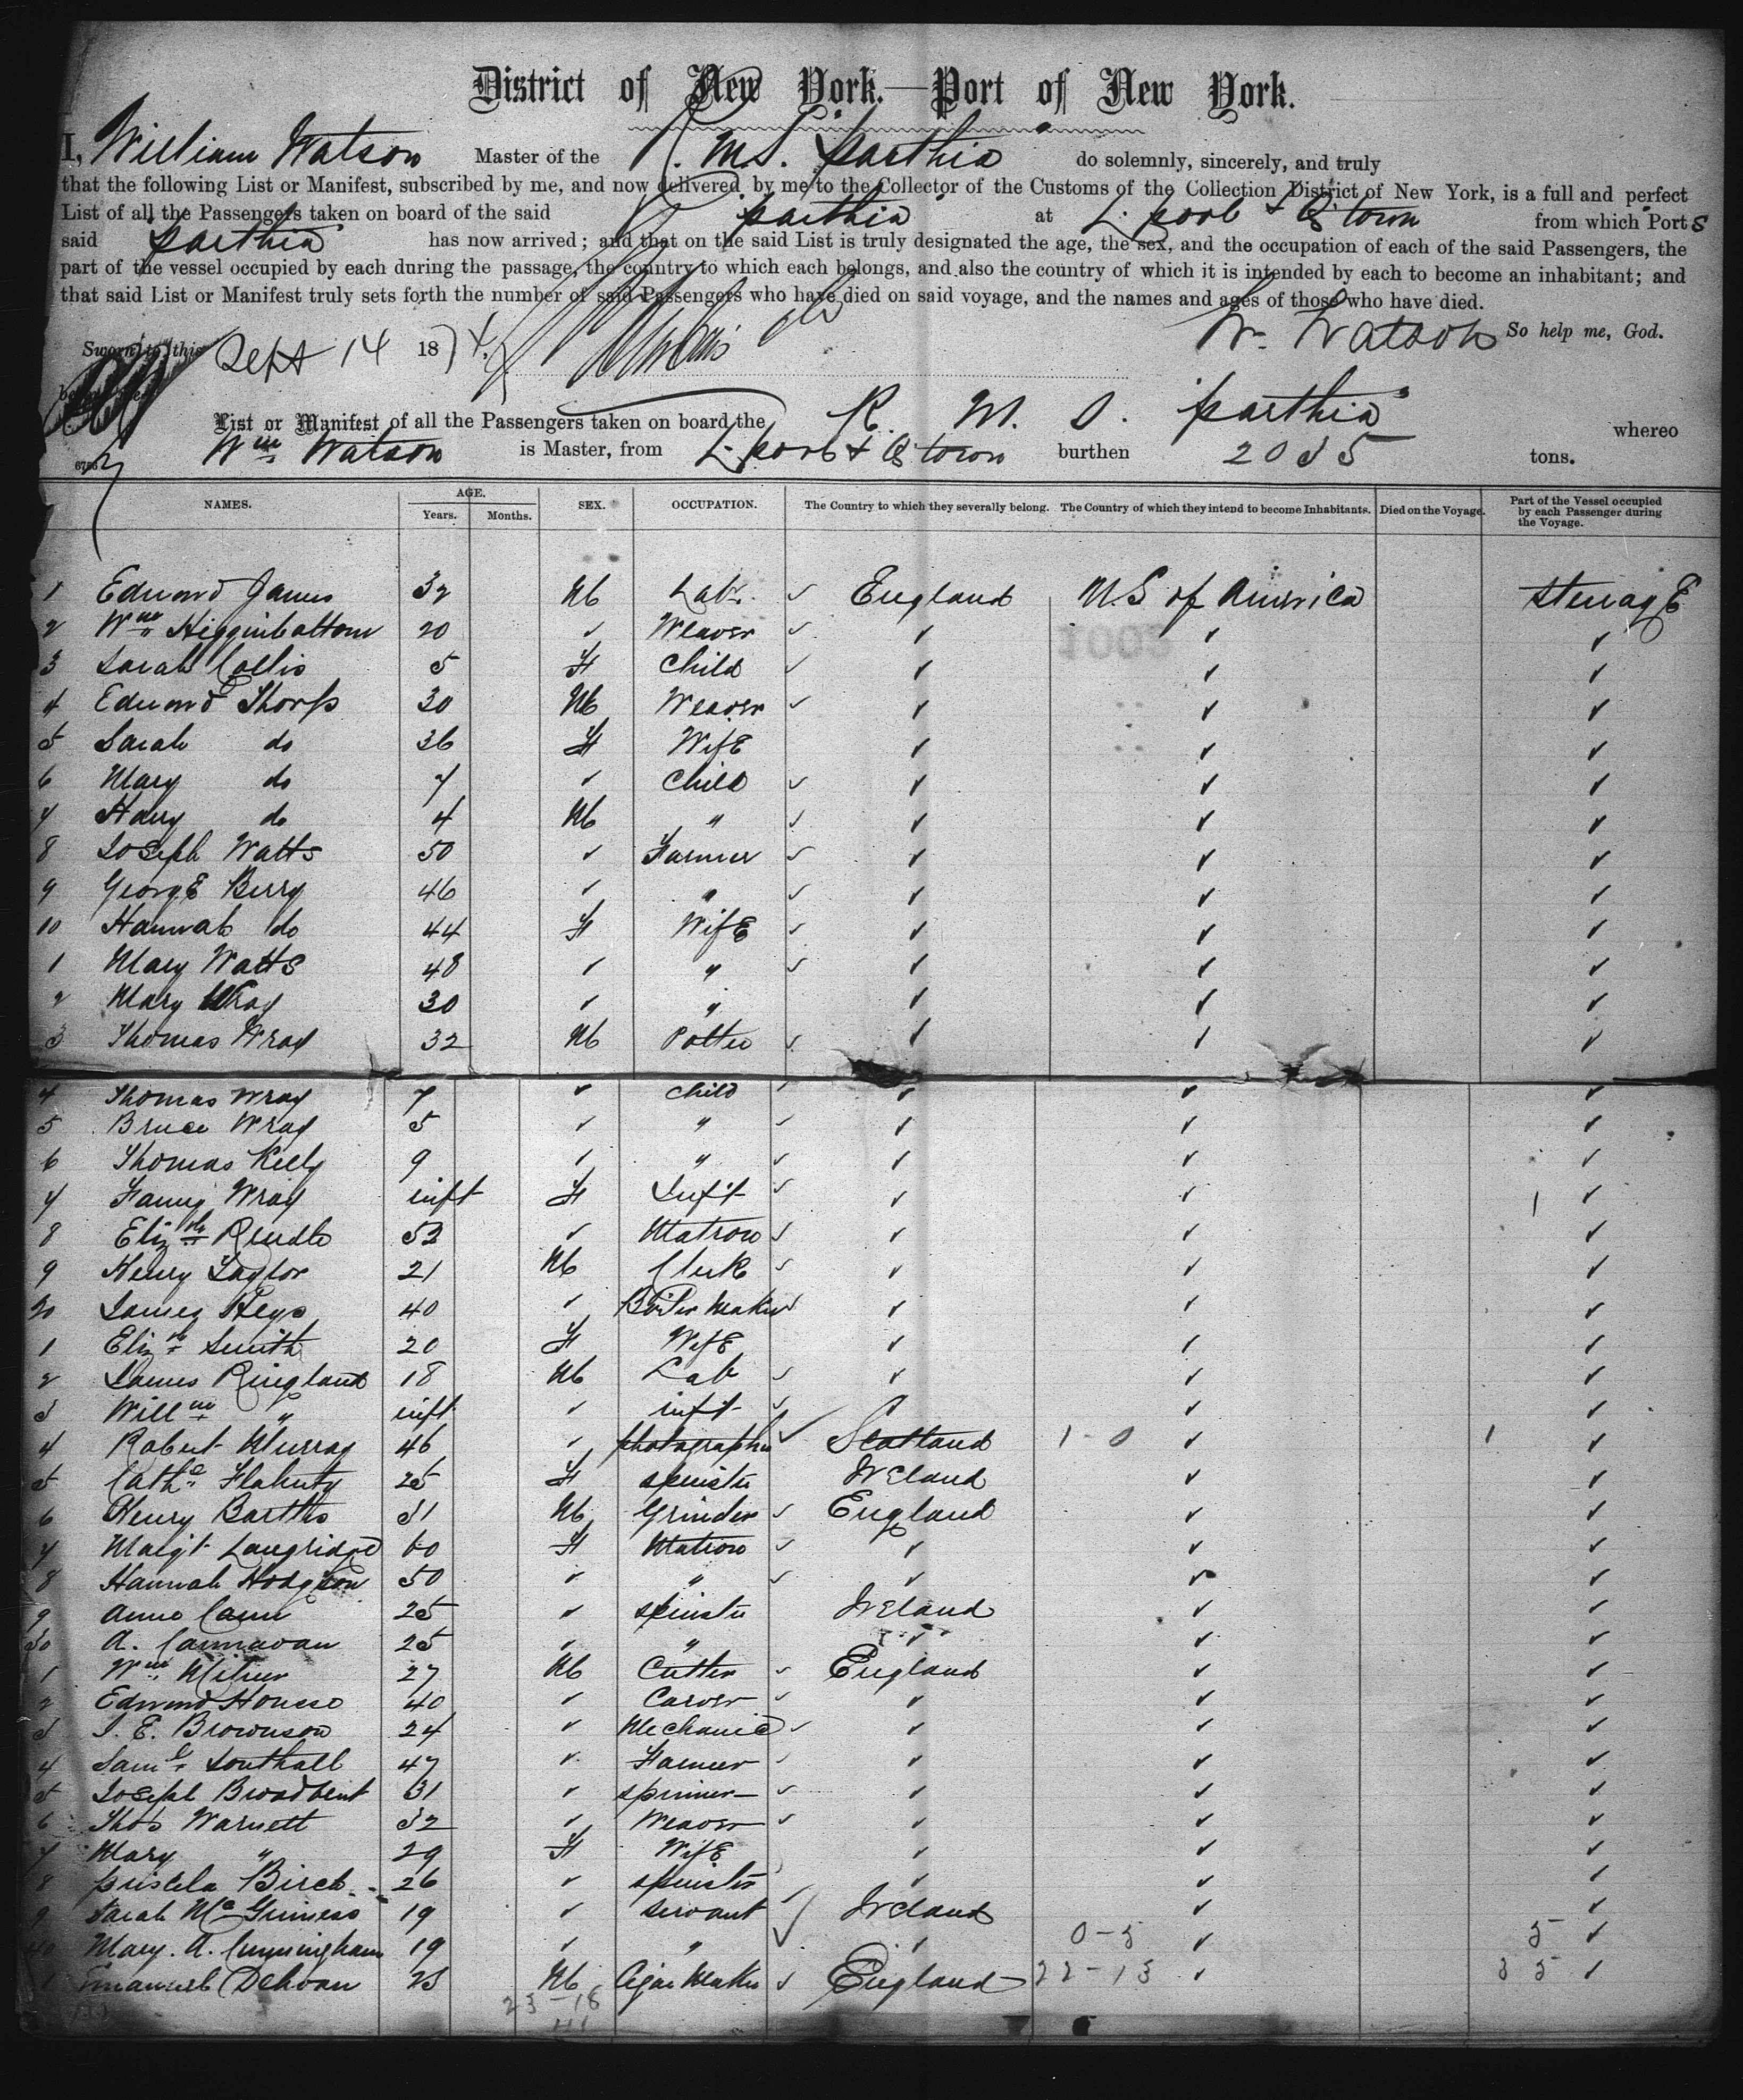 District of New York.—Port of New York.
I, William Watson Master of the R. M. S. "Parthia" do solemnly, sincerely, and truly
that the following List or Manifest, subscribed by me, and now delivered by me to the Collector of the Customs of the Collection District of New York, is a full and perfect
List of all the Passengers taken on board of the said "Parthia" at L.pool & Q.town from which Ports
said "Parthia" has now arrived; and that on the said List is truly designated the age, the sex, and the occupation of each of the said Passengers, the
part of the vessel occupied by each during the passage, the country to which each belongs, and also the country of which it is intended by each to become an inhabitant; and
that said List or Manifest truly sets forth the number of said Passengers who have died on said voyage, and the names and ages of those who have died.
Wm Watson So help me, God.
Sworn to this Sept 14 1874
List or Manifest of all the Passengers taken on board the R. M. S. "Parthia" whereo
Wm Watson is Master, from L.pool & Q.town burthen 2035 tons.
NAMES. AGE. Years. Months. SEX. OCCUPATION. The Country to which they severally belong. The Country of which they intend to become Inhabitants. Died on the Voyage. Part of the Vessel occupied by each Passenger during the Voyage.
1 Edward James 32 M Labr. England U.S of America Steerage
2 Wm Higginbottom 20 ✓ Weaver ✓ ✓ ✓
3 Sarah Collis 5 F Child ✓ ✓ ✓
4 Edward Thorp 30 M Weaver ✓ ✓ ✓
5 Sarah do 36 F Wife ✓ ✓ ✓
6 Mary do 7 ✓ Child ✓ ✓ ✓
7 Harry do 4 M " ✓ ✓ ✓
8 Joseph Watts 50 ✓ Farmer ✓ ✓ ✓
9 George Berry 46 ✓ " ✓ ✓ ✓
10 Hannah do 44 F Wife ✓ ✓ ✓
1 Mary Watts 48 ✓ " ✓ ✓ ✓
2 Mary Wray 30 ✓ " ✓ ✓ ✓
3 Thomas Wray 32 M Potter ✓ ✓ ✓
4 Thomas Wray 7 ✓ Child ✓ ✓ ✓
5 Bruce Wray 5 ✓ " ✓ ✓ ✓
6 Thomas Kelly 9 ✓ " ✓ ✓ ✓
7 Fanny Wray inft F Inft ✓ ✓ 1 ✓
8 Elizth 53 ✓ Matron ✓ ✓ ✓
9 Henry Taylor 21 M Clerk ✓ ✓ ✓
20 James Heys 40 ✓ Boiler Maker ✓ ✓ ✓
1 Elizth Smith 20 F Wife ✓ ✓ ✓
2 James Ringland 18 M Lab ✓ ✓ ✓
3 Willm " inft ✓ inft ✓ ✓ ✓
4 Robert Murray 46 ✓ photographer Scotland 1-0 ✓ 1 ✓
5 Cathe Flaherty 25 F spinster Ireland ✓ ✓
6 Henry Barths 31 M Grinder England ✓ ✓
7 Margt Langridge 60 F Matron ✓ ✓ ✓
8 Hannah Hodgson 50 ✓ " ✓ ✓ ✓
9 Anne Cann 25 ✓ spinster Ireland ✓ ✓
30 A. Cannavan 25 ✓ " ✓ ✓ ✓
1 Wm Milner 27 M Cutter England ✓ ✓
2 Edward House 40 ✓ Carver ✓ ✓ ✓
3 J. E. Brownson 24 ✓ Mechanic ✓ ✓ ✓
4 Saml Southall 47 ✓ Farmer ✓ ✓ ✓
5 Joseph Broadbent 31 ✓ spinner ✓ ✓ ✓
6 Thos Warnett 32 ✓ Weaver ✓ ✓ ✓
7 Mary " 29 F Wife ✓ ✓ ✓
8 Priscila Birch 26 ✓ spinster ✓ ✓ ✓
9 Sarah McGuiness 19 ✓ Servant Ireland ✓ ✓
40 Mary. A. Cunningham 19 ✓ " ✓ 0-5 ✓ 5 ✓
1 Emanuel Dehaan 23 M Cigar Maker England 22-13 ✓ 35 ✓
23-18